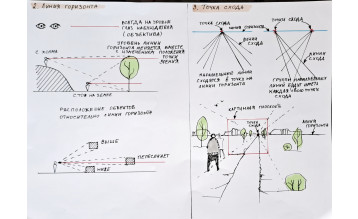 2. ЛИНИЯ ГОРИЗОНТА
ВСЕГДА НА УРОВНЕ
ГЛАЗ НАБЛЮДАТЕЛЯ
(ОБЪЕКТИВА)
УРОВЕНЬ ЛИНИИ
ГОРИЗОНТА МЕНЯЕТСЯ ВМЕСТЕ
С ИЗМЕНЕНИЕМ ПОЛОЖЕНИЯ
ТОЧКИ
ЗРЕНИЯ
С ХОЛМА
СТОЯ НА ЗЕМЛЕ
РАСПОЛОЖЕНИЕ ОБЪЕКТОВ
ОТНОСИТЕЛЬНО ЛИНИИ ГОРИЗОНТА
ВЫШЕ
ПЕРЕСЕКАЕТ
НИЖЕ
3. ТОЧКА СХОДА
ТОЧКА СХОДА
ЛИНИЯ ГОРИЗОНТА
ТОЧКИ СХОДА
ЛИНИИ
СХОДА
ЛИНИИ
СХОДА
ПАРАЛЛЕЛЬНЫЕ ЛИНИИ
СХОДЯТСЯ В ТОЧКУ НА
ЛИНИИ ГОРИЗОНТА
ГРУППЫ ПАРАЛЛЕЛЬНЫХ
ЛИНИЙ ИМЕЮТ
КАЖДАЯ СВОЮ ТОЧКУ
СХОДА
КАРТИННАЯ ПЛОСКОСТЬ
ТОЧКА
СХОДА
ЛИНИЯ
ГОРИЗОНТА
ЛИНИИ
СХОДА